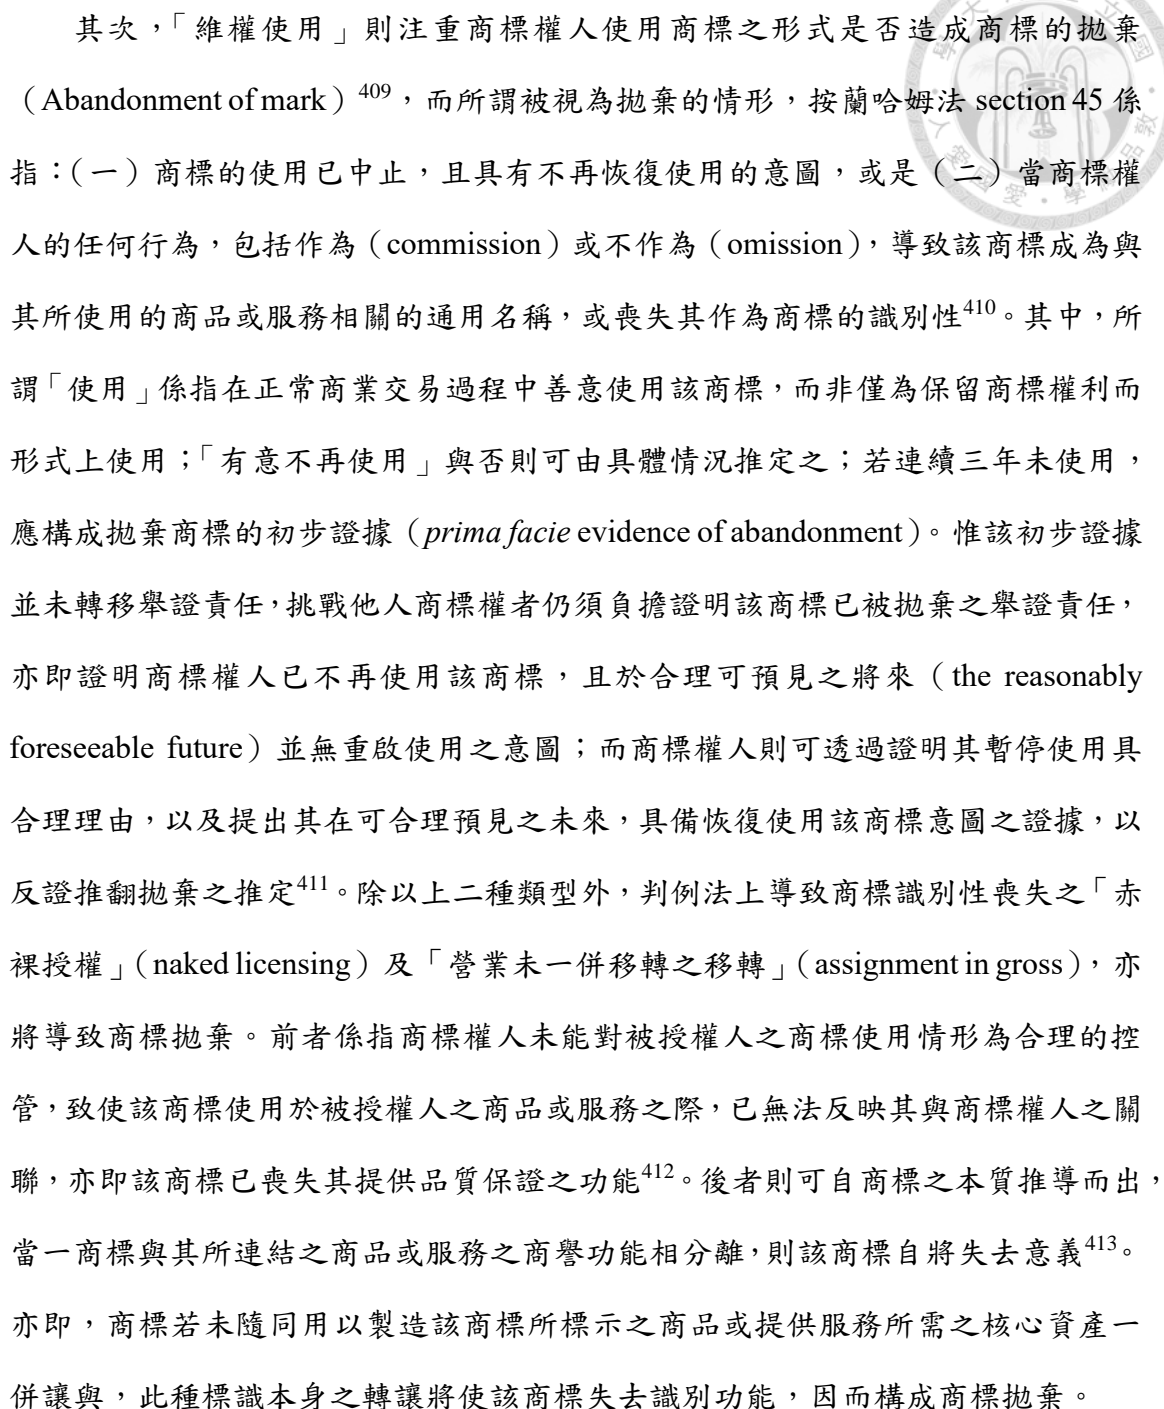 其次，「維權使用」則注重商標權人使用商標之形式是否造成商標的拋棄
（Abandonment of mark）409，而所謂被視為拋棄的情形，按蘭哈姆法 section 45 係
指：（一）商標的使用已中止，且具有不再恢復使用的意圖，或是（二）當商標權
人的任何行為，包括作為（commission）或不作為（omission），導致該商標成為與
其所使用的商品或服務相關的通用名稱，或喪失其作為商標的識別性410。其中，所
謂「使用」係指在正常商業交易過程中善意使用該商標，而非僅為保留商標權利而
形式上使用；「有意不再使用」與否則可由具體情況推定之；若連續三年未使用，
應構成拋棄商標的初步證據（prima facie evidence of abandonment）。惟該初步證據
並未轉移舉證責任，挑戰他人商標權者仍須負擔證明該商標已被拋棄之舉證責任，
亦即證明商標權人已不再使用該商標，且於合理可預見之將來（the reasonably
foreseeable future）並無重啟使用之意圖；而商標權人則可透過證明其暫停使用具
合理理由，以及提出其在可合理預見之未來，具備恢復使用該商標意圖之證據，以
反證推翻拋棄之推定411。除以上二種類型外，判例法上導致商標識別性喪失之「赤
裸授權」（naked licensing）及「營業未一併移轉之移轉」（assignment in gross），亦
將導致商標拋棄。前者係指商標權人未能對被授權人之商標使用情形為合理的控
管，致使該商標使用於被授權人之商品或服務之際，已無法反映其與商標權人之關
聯，亦即該商標已喪失其提供品質保證之功能412。後者則可自商標之本質推導而出，
當一商標與其所連結之商品或服務之商譽功能相分離，則該商標自將失去意義413。
亦即，商標若未隨同用以製造該商標所標示之商品或提供服務所需之核心資產一
併讓與，此種標識本身之轉讓將使該商標失去識別功能，因而構成商標拋棄。